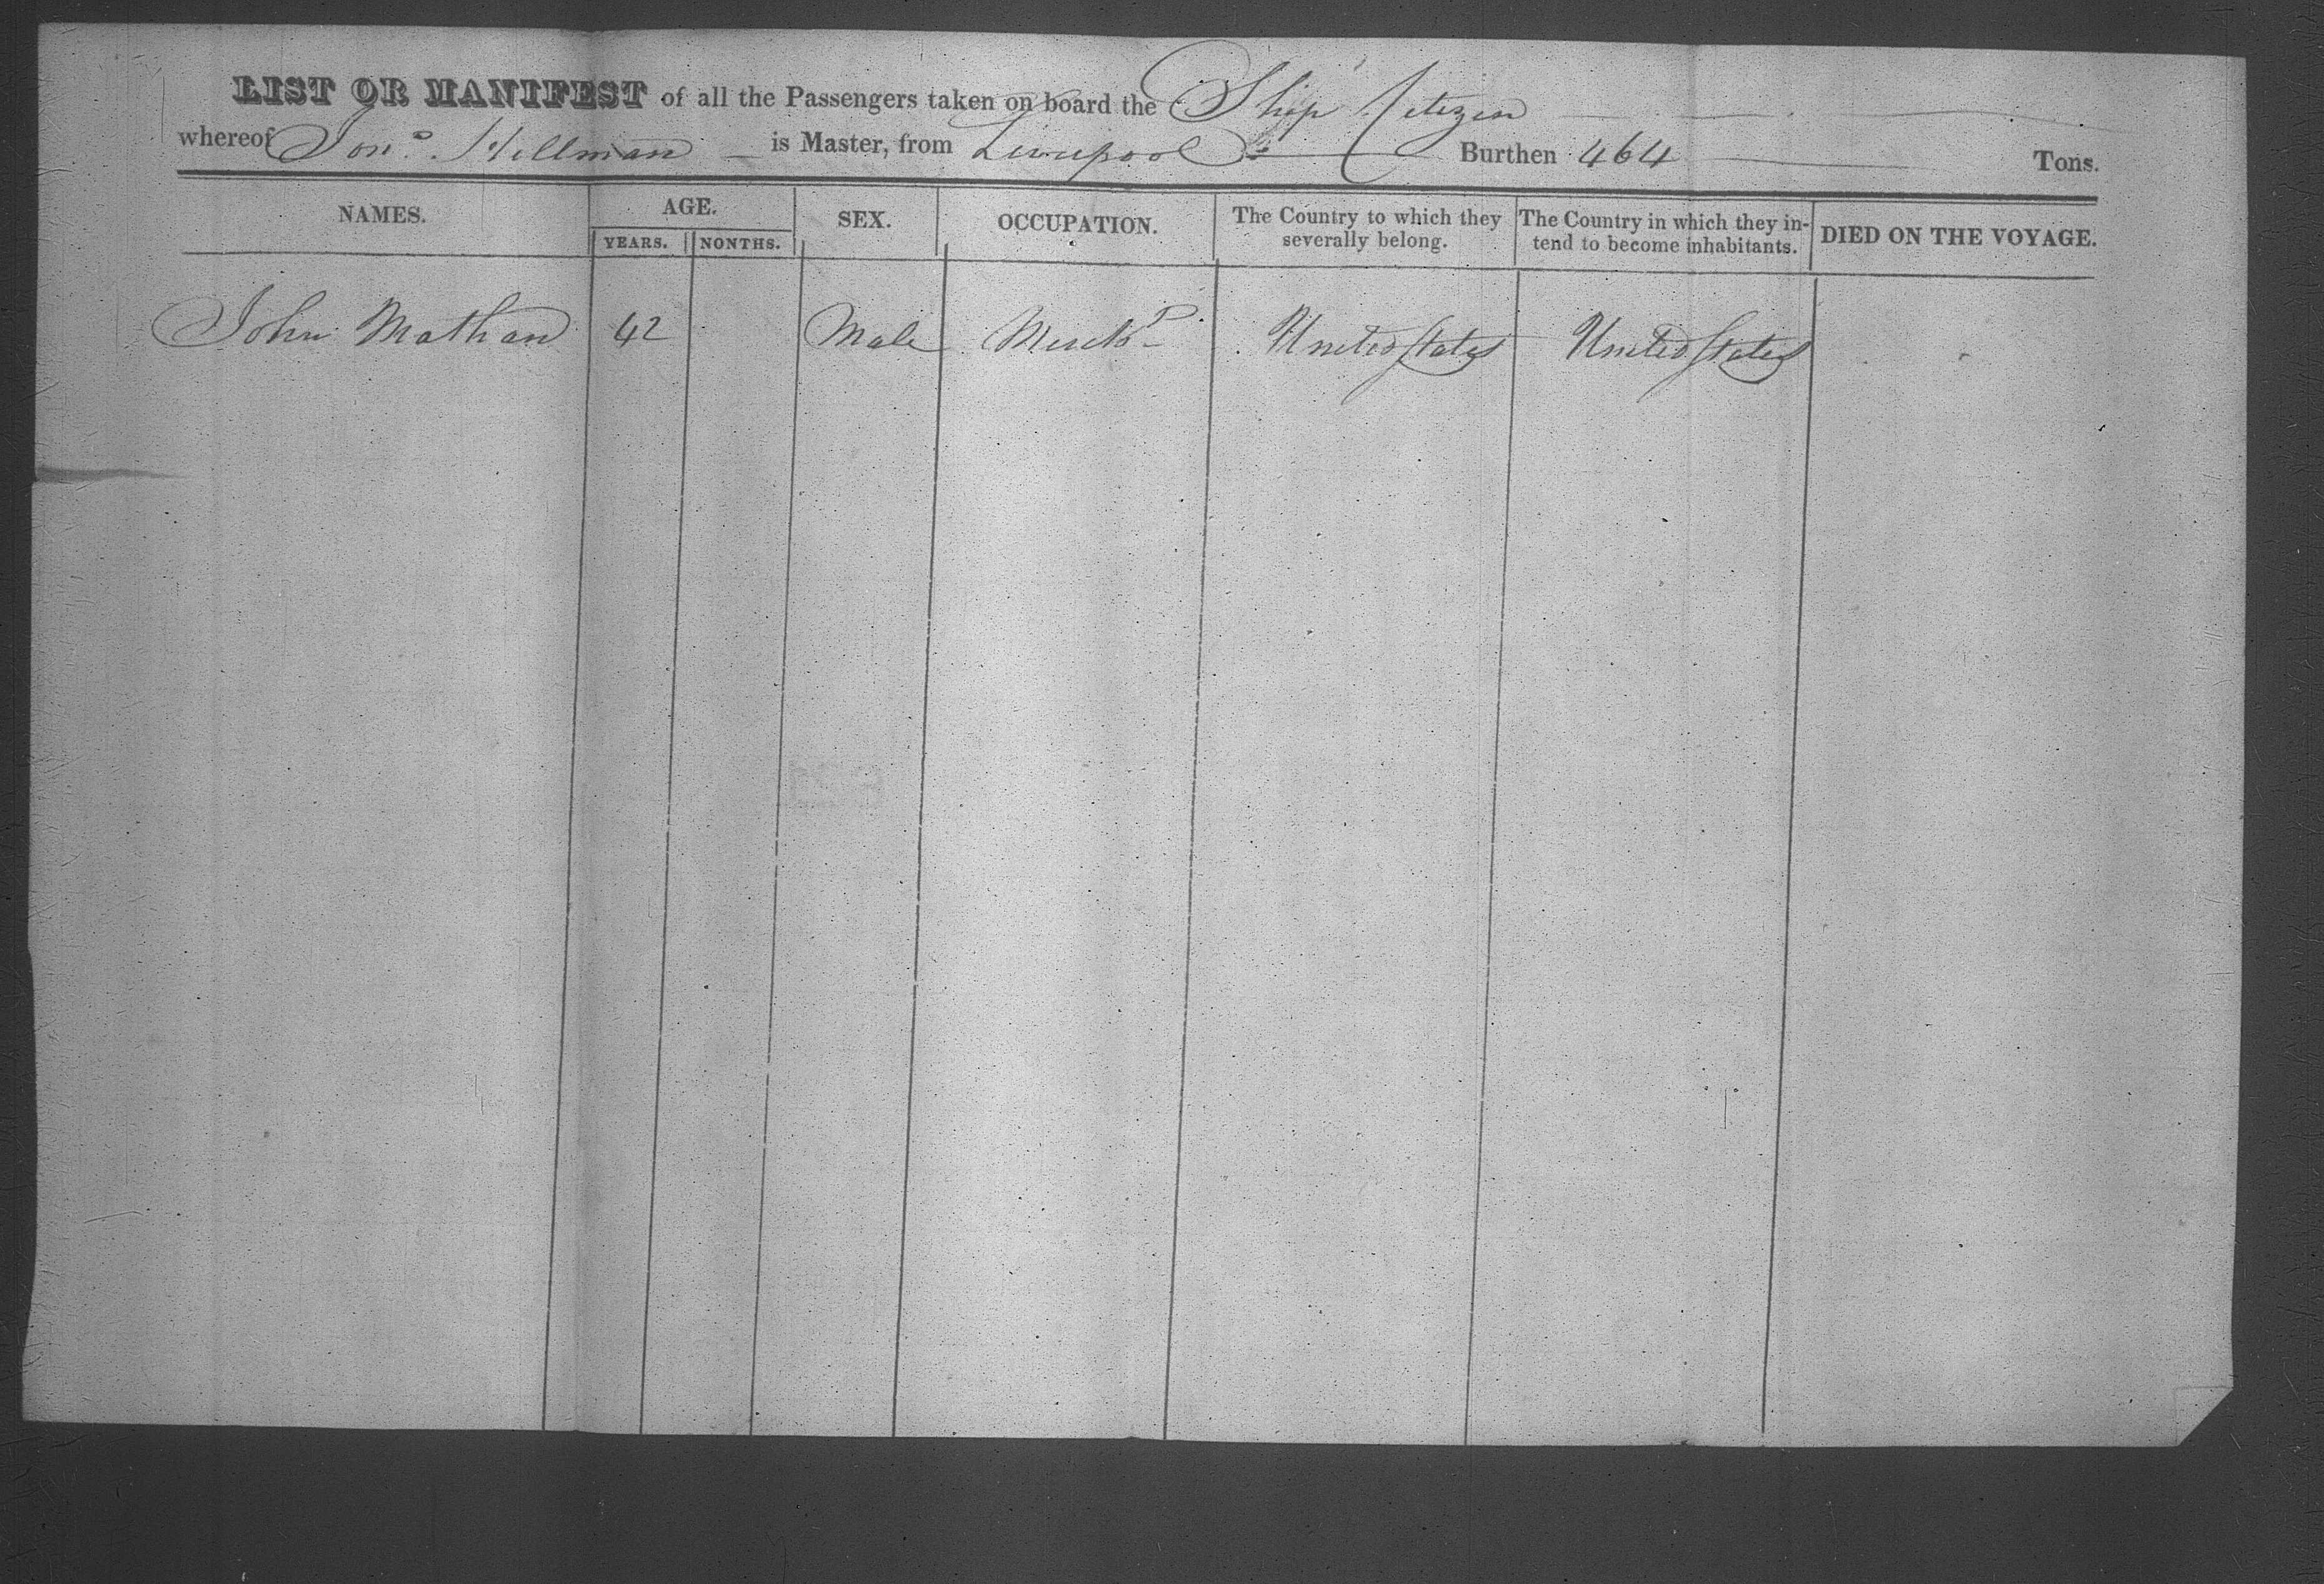 LIST OR MANIFEST of all the Passengers taken on board the Ship Citizen
whereof Jon.ª Hillman is Master, from Liverpool Burthen 464 Tons.
NAMES. AGE. SEX. OCCUPATION. The Country to which they severally belong. The Country in which they in-tend to become inhabitants. DIED ON THE VOYAGE.
YEARS. NONTHS.
John Mathan 42 Male United States United States